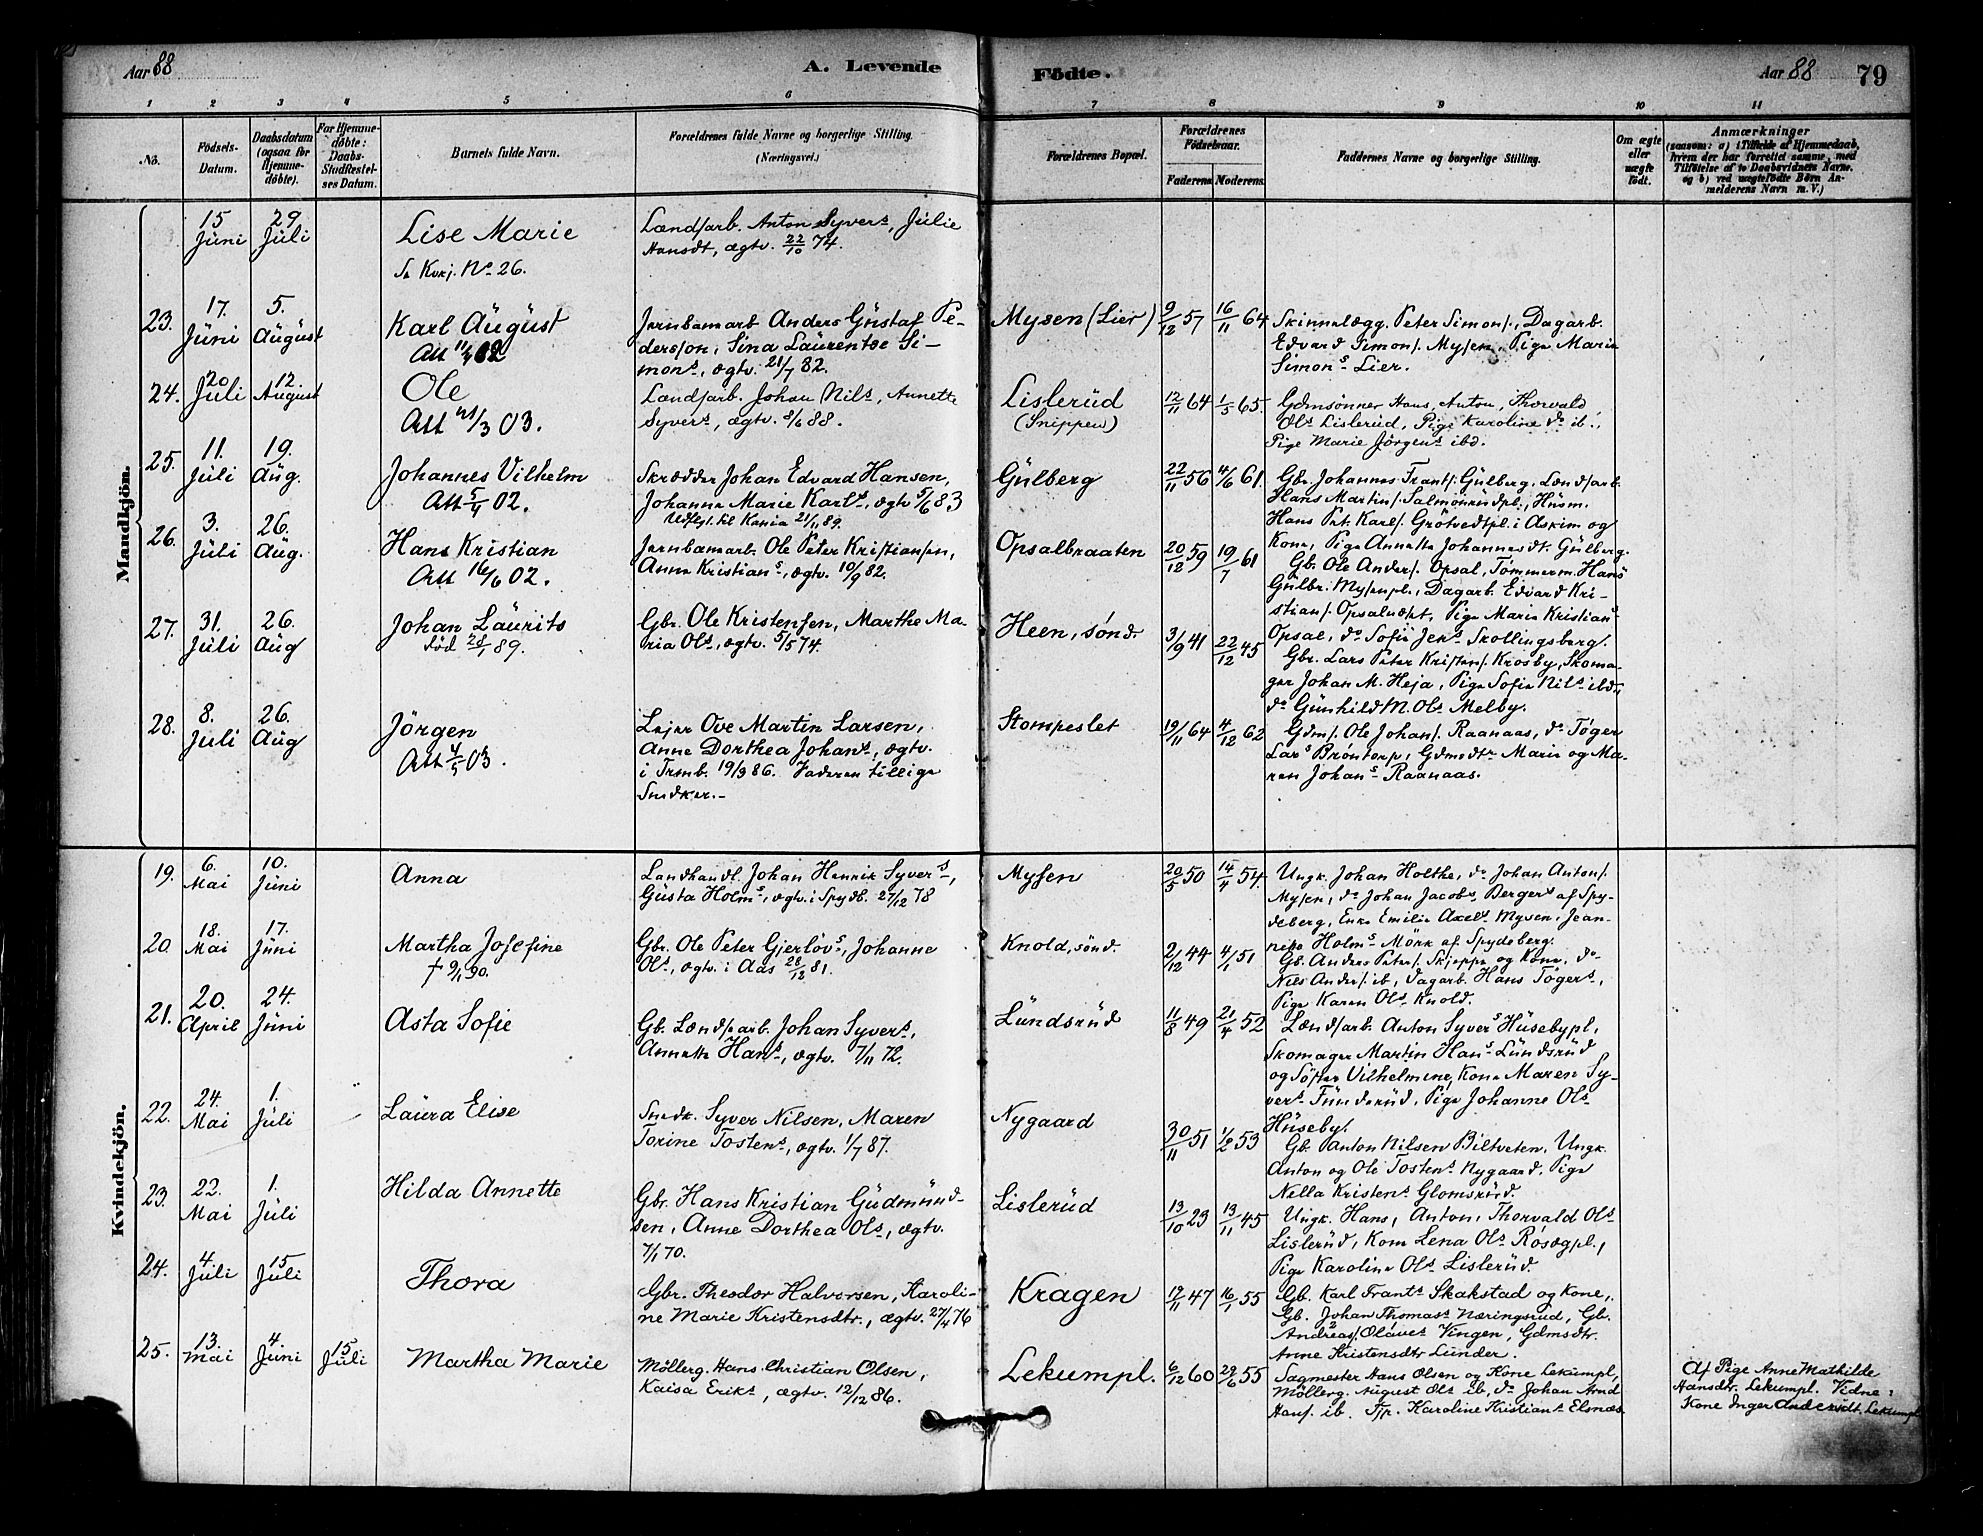 Aar 88
A. Levende
Födte.
Aar 88
79
1 2 3 4 5 6 7 8 9 10 11
No.
Födsels-
Datum.
Daabsdatum
(ogsaa for
Hjemme-
döbte).
For Hjemme-
döbte:
Daabs-
Stadfæstel-
ses Datum.
Barnets fulde Navn.
Forældrenes fulde Navne og borgerlige Stilling.
(Næringsvei.)
Forældrenes Bopæl.
Forældrenes
Födselsaar.
Faderens. Moderens.
Faddernes Navne og borgerlige Stilling.
Om ægte
eller
uægte
födt.
Anmærkninger
(saasom: a) i Tilfælde af Hjemmedaab,
hvem der har forrettet samme, med
Tilföielse af to Daabsvidners Navne,
og b) ved uægtefödte Börn An-
melderens Navn m. V.)
Mandkjön.
15 Juni
29 Juli
Lise Marie
Se Kvkj. No 26.
Landarb. Anton Syvers, Julie
Hansdt, ægtv. 22/10 74.
23.
17. Juni
5. August
Karl August
Jernbanearb Anders Gustaf Pe-
dersson, Sina Laurentse Si-
mons, ægtv. 21/7 82.
Mysen (Lier)
9/12 57
16/11 64
Skinnelægg. Peter Simons., Dagarb.
Edvard Simons. Mysen, Pige Maria
Simons Lier.
24.
20 Juli
12. August
Ole
Att 21/3 03.
Landarb. Johan Nils, Annette
Syvers, ægtv. 8/6 88.
Lislerud
(Snippen)
12/11 64
1/5 65.
Gdmsönner Hans, Anton, Thorvald
Ols Lislerud, Pige Karoline do ib.,
Pige Marie Jörgens ibd.
25.
11. Juli
19. Aug.
Johannes Vilhelm
Att 5/4 02.
Skrædder Johan Edvard Hansen,
Johanna Marie Karls, ægtv 5/6 83
Udflgt. til Kania 21/11 89.
Gulberg
22/11 56
4/6 61.
Gbr Johannes Frants. Gulberg, Landarb.
Hans Martins. Salmonrudpl., Husm.
Hans Pet. Karls. Grötvedtpl. i Askim og
Kone, Pige Annette Johannesdt. Gulberg.
26.
3. Juli
26. Aug.
Hans Kristian
Att 16/6 02.
Jernbanearb. Ole Peter Kristiansen,
Anna Kristians, ægtv. 10/9 82.
Opsalbraaten
20/12 59
19/7 61
Gb. Ole Anders. Opsal, Tömmerm. Hans
Gulbr. Mysenpl., Dagarb. Edvard Kri-
stians. Opsal, Pige Maria Kristians
Opsal, do Sofie Jens Skollingsberg.
27.
31. Juli
26. Aug
Johan Laurits
död 28/1 89.
Gbr. Ole Kristensen, Marthe Ma-
ria Ols, ægtv. 5/5 74.
Heen, sönd
3/9 41
22/12 45
Gbr. Lars Peter Kristens. Krosby, Skoma-
ger Johan M. Heja, Pige Sofie Nils ibd.,
do Gunhild M. Ols Melby.
28.
8. Juli
26. Aug
Jörgen
Att 4/5 03.
Lejer Ove Martin Larsen,
Anne Dorthea Johans, ægtv.
i Trmb. 19/9 86. Faderen tillige
Snedker.
Stompeslet
19/11 64
4/12 62
Gdm. Ole Johans. Raanaas, do Töger
Lars Bröntorp, Gdmdtr Maria og Ma-
ren Johans Raanaas.
Kvindekjön.
19.
6. Mai
10. Juni
Anna
Landhandl. Johan Henrik Syvers,
Gusta Holms, ægtv. i Spydb. 27/12 78
Mysen
20/5 50
14/4 54.
Ungk. Johan Holthe, do Johan Antons.
Mysen, do Johan Jacobs, Bergers af Spy-
deberg, Enke Emilie Axels Mysen, Jean-
nette Holms Mörk af Spydeberg.
20.
18. Mai
17. Juni
Martha Josefine
† 9/1 90.
Gbr. Ole Peter Gjerlövs, Johanne
Ols, ægtv. i Aas 28/12 81.
Knold, sönd.
2/12 44
4/1 51
Gb. Anders Peters. Skjeppe og Kone, do
Nils Anders. ib, Dagarb. Hans Tögers,
Pige Karen Ols Knold.
21.
20. April
24. Juni
Asta Sofie
Gb. Landarb. Johan Syvers,
Annette Hans, ægtv. 7/11 72.
Lundsrud
11/8 49
21/4 52
Landarb. Anton Syvers Husebypl.
Skomager Martin Hans Lundsrud
og Söster Vilhelmine, Kone Maren Sy-
vers Funderud, Pige Johanne Ols
Huseby.
22.
24. Mai
1. Juli
Laura Elise
Snedk. Syver Nilsen, Maren
Torine Tostens, ægtv. 1/7 87.
Nygaard
30/11 51
1/2 53
Gb. Anton Nilsen Biltveten, Ungk.
Anton og Ole Tostens Nygaard, Pige
Nella Kristens Glomsrud.
23.
22. Mai
1. Juli
Hilda Annette
Gbr. Hans Kristian Gudmund-
sen, Anne Dorthea Ols, ægtv.
7/1 70.
Lislerud
13/10 23
13/11 45
Ungk. Hans, Anton, Thorvald Ols
Lislerud, Kone Lena Ols Rosægpl.,
Pige Karoline Ols Lislerud.
24.
4 Juli
15 Juli
Thora
Gbr. Theodor Halvorsen, Karoli-
ne Marie Kristensdtr., ægtv. 27/4 76
Kragen
12/11 47
16/1 55
Gb. Karl Frants Skakstad og Kone,
Gb. Johan Thomas Næringsrud, Gb.
Andreas Olaves Vingen, Gdmsdtr.
Anne Kristensdtr Lunder.
25.
13. Mai
4. Juni
15 Juli
Martha Marie
Möllerg. Hans Christian Olsen,
Kaisa Eriks, ægtv. 12/12 86.
Lekumpl.
6/12 60
29/6 55
Sagmester Hans Olsen og Kone Lekumpl,
Möllerg. August Ols ib, do Johan Arnd
Hans. ib. Tjp. Karoline Kristians Elsnæs
Af Pige Anne Mathilde
Hansdtr. Lekumpl. Vidne:
Kone Inger Andersdt. Lekumpl